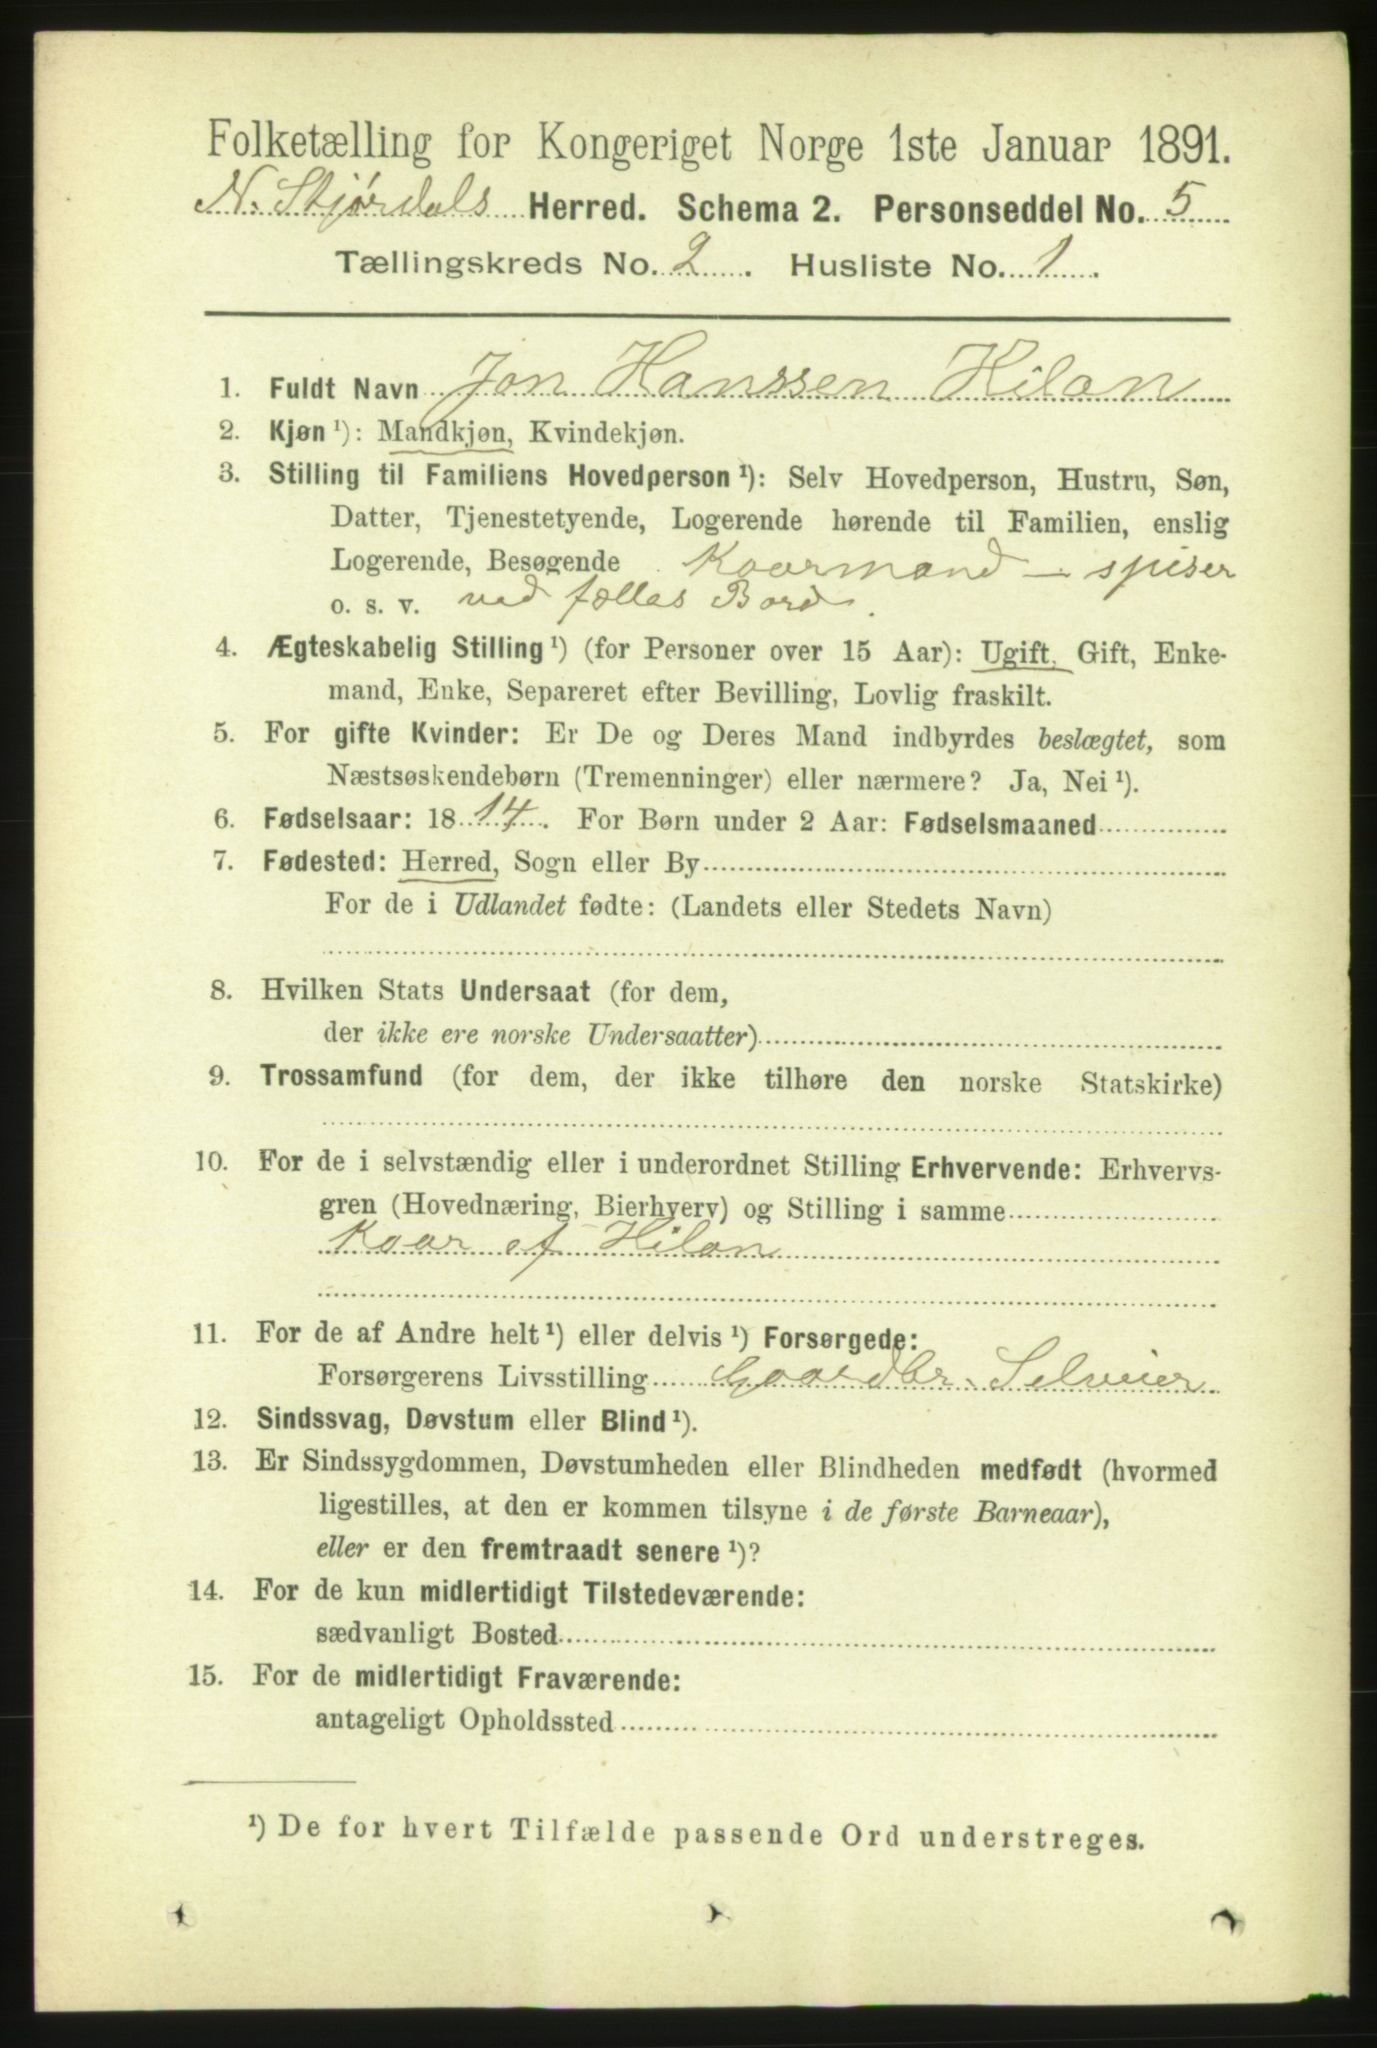 Folketælling for Kongeriget Norge 1ste Januar 1891.
N. Stjørdals Herred. Schema 2. Personseddel No. 5
Tællingskreds No. 2. Husliste No. 1.
1. Fuldt Navn Jon Hanssen Hilan
2. Kjøn ¹): Mandkjøn, Kvindekjøn.
3. Stilling til Familiens Hovedperson ¹): Selv Hovedperson, Hustru, Søn,
Datter, Tjenestetyende, Logerende hørende til Familien, enslig
Logerende, Besøgende Kaarmand – spiser
o. s. v. ved fælles Bord.
4. Ægteskabelig Stilling ¹) (for Personer over 15 Aar): Ugift, Gift, Enke-
mand, Enke, Separeret efter Bevilling, Lovlig fraskilt.
5. For gifte Kvinder: Er De og Deres Mand indbyrdes beslægtet, som
Næstsøskendebørn (Tremenninger) eller nærmere? Ja, Nei ¹).
6. Fødselsaar: 1814. For Børn under 2 Aar: Fødselsmaaned
7. Fødested: Herred, Sogn eller By
For de i Udlandet fødte: (Landets eller Stedets Navn)
8. Hvilken Stats Undersaat (for dem,
der ikke ere norske Undersaatter)
9. Trossamfund (for dem, der ikke tilhøre den norske Statskirke)
10. For de i selvstændig eller i underordnet Stilling Erhvervende: Erhvervs-
gren (Hovednæring, Bierhverv) og Stilling i samme
Kaar af Hilan
11. For de af Andre helt ¹) eller delvis ¹) Forsørgede:
Forsørgerens Livsstilling Gaardbr. Selveier
12. Sindssvag, Døvstum eller Blind ¹).
13. Er Sindssygdommen, Døvstumheden eller Blindheden medfødt (hvormed
ligestilles, at den er kommen tilsyne i de første Barneaar),
eller er den fremtraadt senere ¹)?
14. For de kun midlertidigt Tilstedeværende:
sædvanligt Bosted
15. For de midlertidigt Fraværende:
antageligt Opholdssted
¹) De for hvert Tilfælde passende Ord understreges.